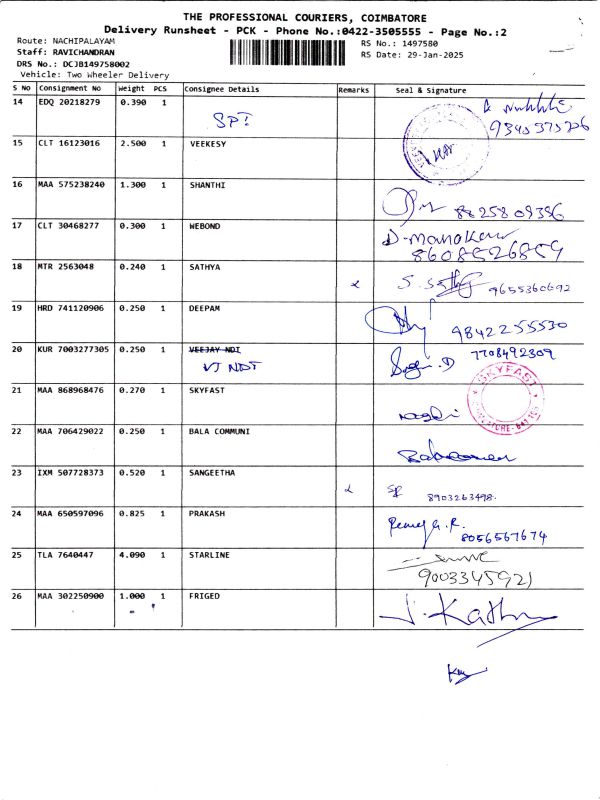 THE PROFESSIONAL COURIERS, COIMBATORE
Delivery Runsheet - PCK - Phone No.:0422-3505555 - Page No.:2
Route: NACHIPALAYAM
RS No.: 1497580
Staff: RAVICHANDRAN
RS Date: 29-Jan-2025
DRS No.: DCJB149758002
Vehicle: Two Wheeler Delivery
S No Consignment No Weight PCS Consignee Details Remarks Seal & Signature
14 EDQ 20218279 0.390 1 SPI
15 CLT 16123016 2.500 1 VEEKESY
16 MAA 575238240 1.300 1 SHANTHI 8825809396
17 CLT 30468277 0.300 1 WEBOND D-manokaur
8608526859
18 MTR 2563048 0.240 1 SATHYA 9655360692
19 HRD 741120906 0.250 1 DEEPAM 9842255530
20 KUR 7003277305 0.250 1 VEEJAY NDI 7708492309
VJ NDT
21 MAA 868968476 0.270 1 SKYFAST SKYFAST
22 MAA 706429022 0.250 1 BALA COMMUNI
23 IXM 507728373 0.520 1 SANGEETHA 8903263498.
24 MAA 650597096 0.825 1 PRAKASH 8056567674
25 TLA 7640447 4.090 1 STARLINE
9003345921
26 MAA 302250900 1.000 1 FRIGED